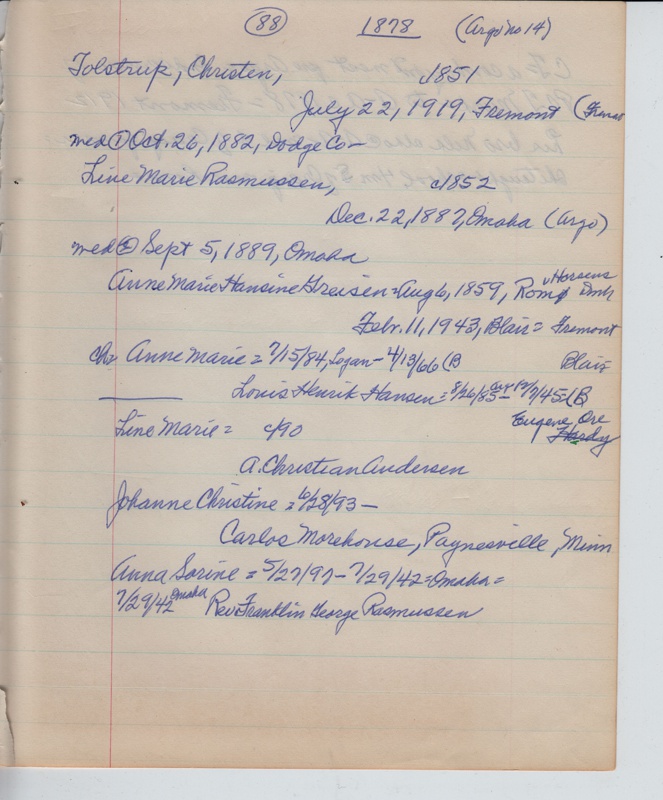 (88) 1878 (Argo no 14)
Tolstrup, Christen, c/1851
July 22, 1919, Fremont
med ① Oct. 26, 1882, Dodge Co —
Line Marie Rasmussen, c/1852
Dec. 22, 1887, Omaha (Argo)
med ② Sept 5, 1889, Omaha
Horsens
Anne Marie Hansine Greisen = Aug 6, 1859, Dmk
Febr. 11, 1943, Blair = Fremont
ch = Anne Marie = 7/15/84, Logan — 4/13/66 (B Blair
Louis Henrik Hansen = 8/26/85 — 7/45 = (B
Line Marie = c/90 Eugene, Ore
A. Christian Andersen
Johanne Christine = 6/28/93 —
Carlos Morehouse, Paynesville, Minn
Anna Sorine = 5/27/97 — 7/29/42 = Omaha =
7/29/42 Omaha Rev. Franklin George Rasmussen